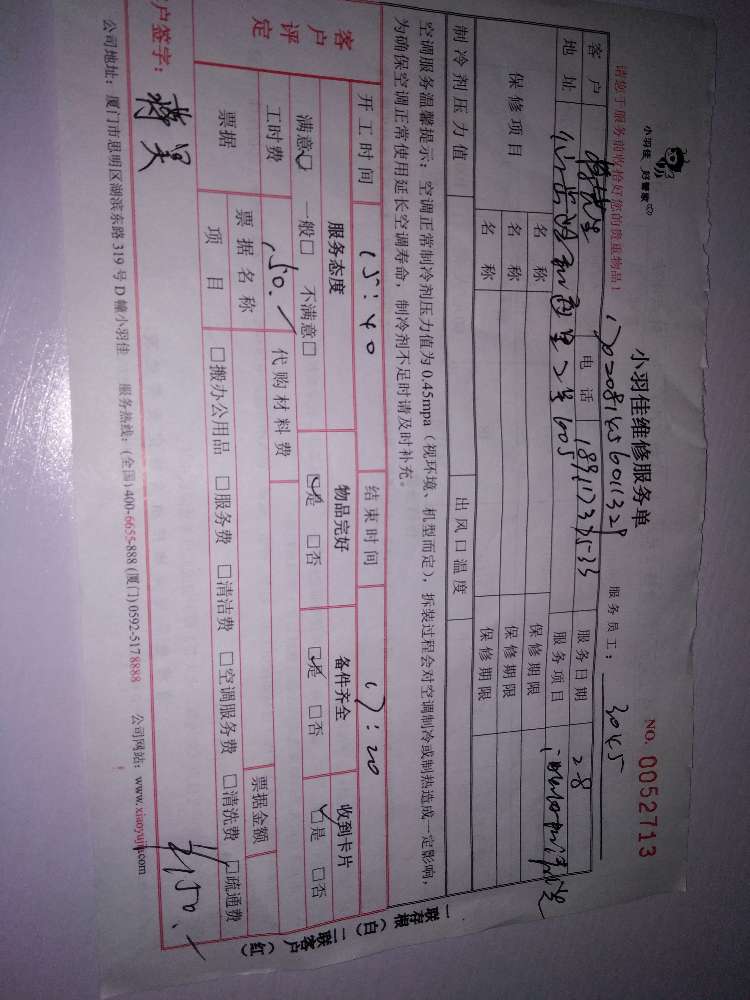 小羽佳 刘管家
小羽佳维修服务单
NO. 0052713
请您于服务前收拾好您的贵重物品！
服务员工： 3045
客户 电话 服务日期 28
地址 服务项目
保修项目 名称 保修期限
名称 保修期限
名称 保修期限
制冷剂压力值 出风口温度
空调服务温馨提示：空调正常制冷剂压力值为0.45mpa（视环境、机型而定），拆装过程会对空调制冷或制热造成一定影响，
为确保空调正常使用延长空调寿命，制冷剂不足时请及时补充。
开工时间 15：40 结束时间 17：20
客户评定 服务态度 物品完好 备件齐全 收到卡片
满意☑ 一般□ 不满意□ ☑是 □否 ☑是 □否 ☑是 □否
工时费 150. 代购材料费
票据 票据名称 票据金额
项目 □搬办公用品 □服务费 □清洁费 □空调服务费 □清洗费 □疏通费
客户签字： 150.
公司地址：厦门市思明区湖滨东路319号D幢小羽佳 服务热线：(全国)400-6655-888 (厦门)0592-5178888 公司网站：www.xiaoyujia.com
一联存根（白） 二联客户（红）